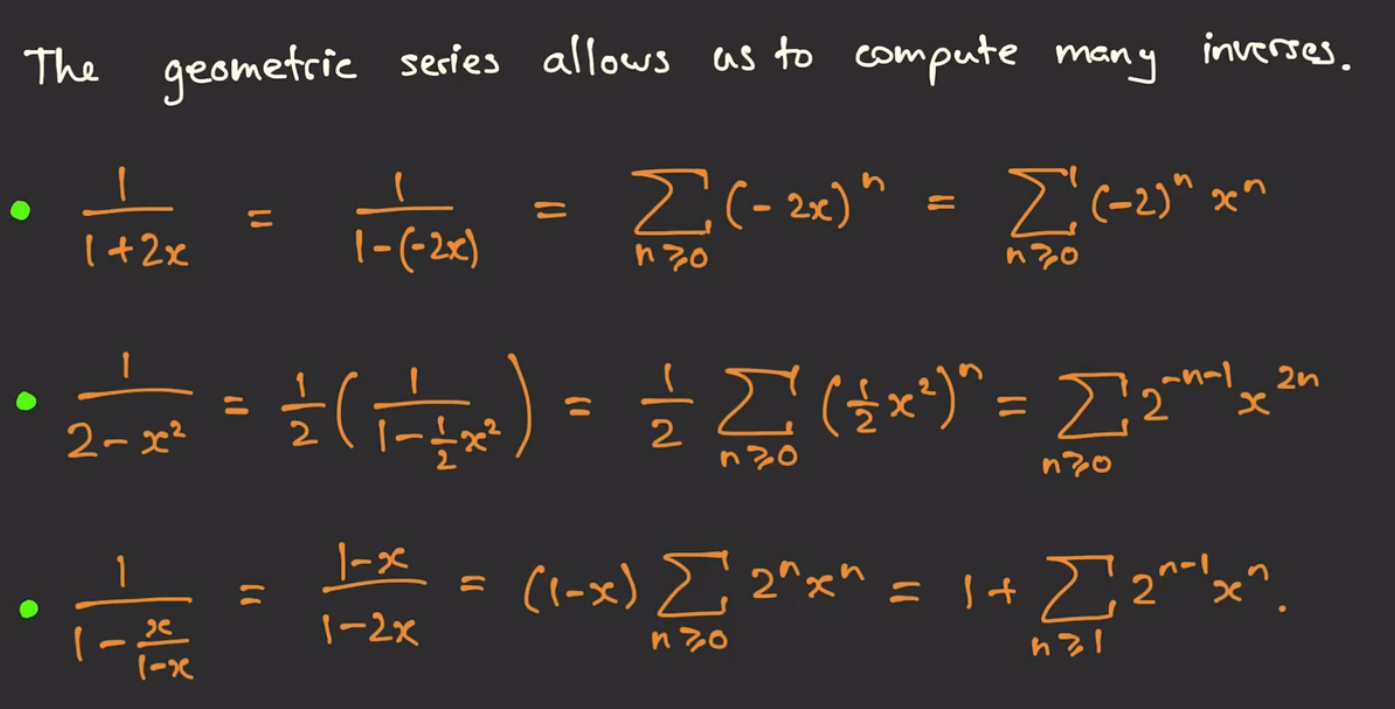 The geometric series allows us to compute many inverses.
• 1/(1+2x) = 1/(1-(-2x)) = ∑_{n⩾0} (-2x)^n = ∑_{n⩾0} (-2)^n x^n
• 1/(2-x²) = 1/2 (1/(1-1/2 x²)) = 1/2 ∑_{n⩾0} (1/2 x²)^n = ∑_{n⩾0} 2^{-n-1} x^{2n}
• 1/(1-x/(1-x)) = (1-x)/(1-2x) = (1-x) ∑_{n⩾0} 2^n x^n = 1+ ∑_{n⩾1} 2^{n-1} x^n.